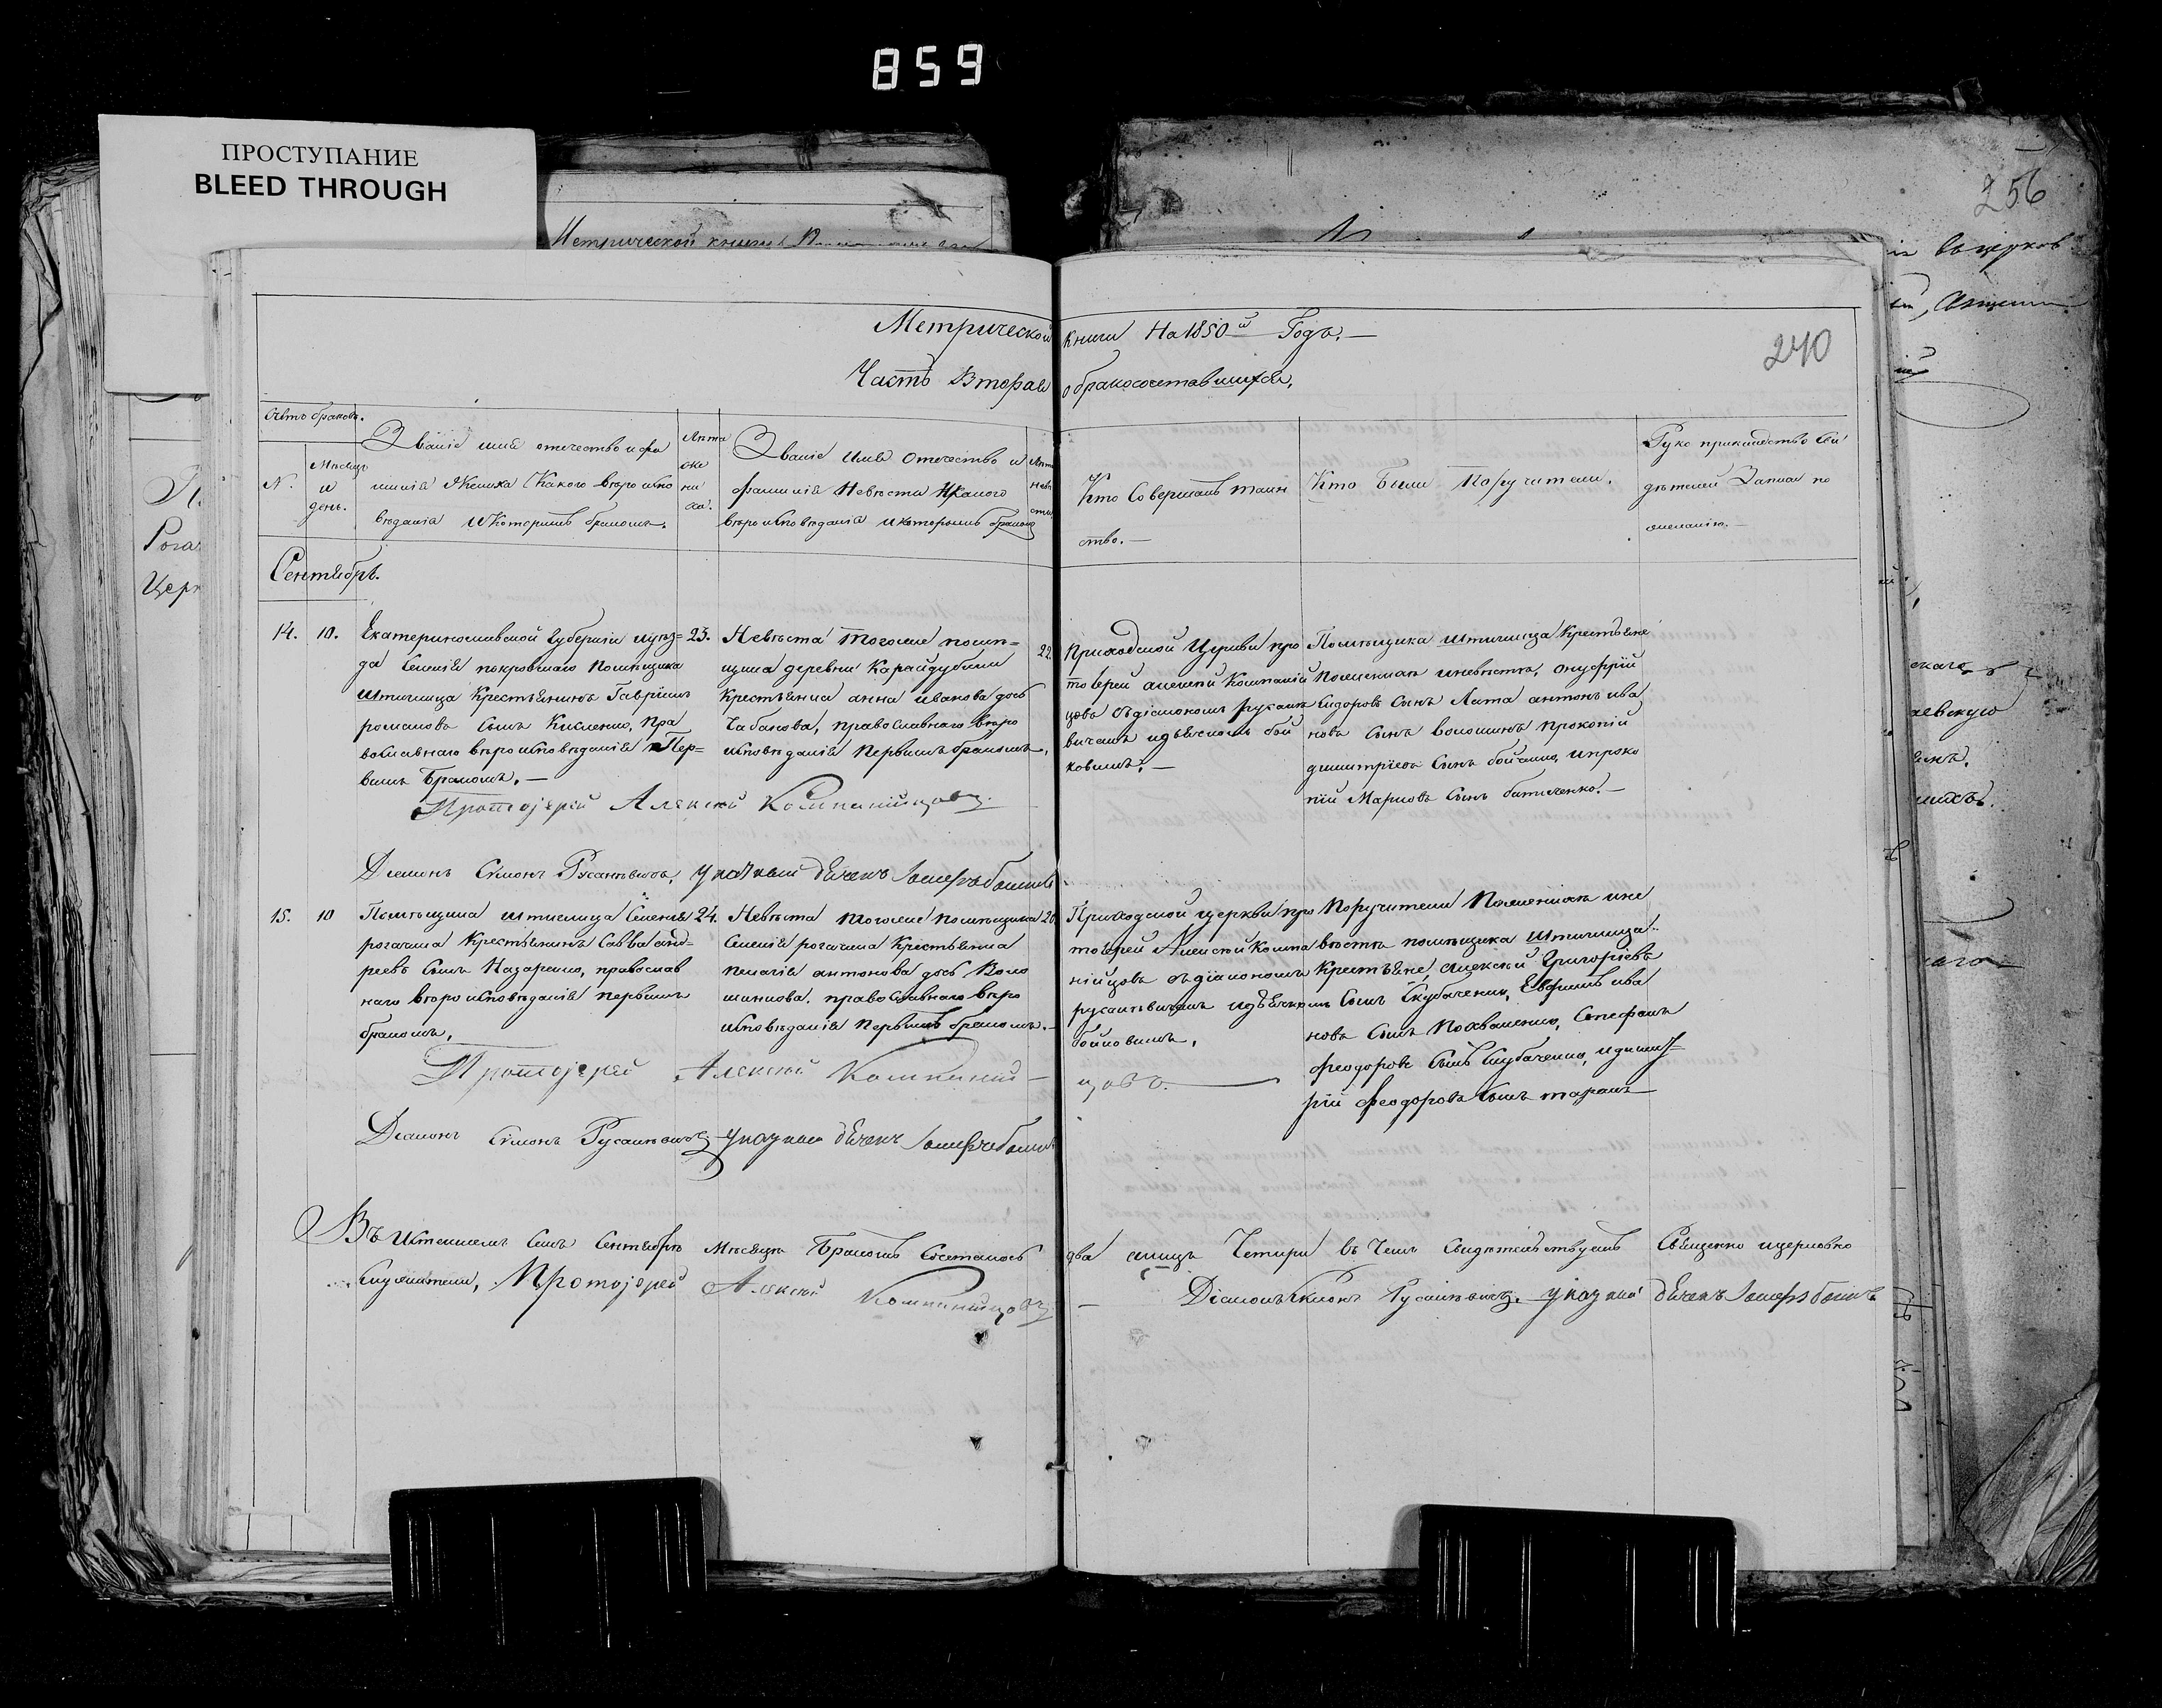 859
ПРОСТУПАНИЕ
BLEED THROUGH
256
Метрической книги На 1850й Годъ.—
240
Часть Вторая о бракосочетавшихся.
Счетъ браковъ.
N.
Мѣсяцъ
и
день.
Званіе имя отечество и фа
милія Жениха Какого вѣро испо
вѣданія И Которымъ бракомъ.
Лѣта
же
ни
ха.
Званіе Имя Отечество и
фамилія Невѣсты И Какого
вѣро исповѣданія и которымъ бракомъ
Лѣта
невѣ
сты
Кто Совершалъ таин
ство.—
Кто Были Поручители.
Руко прикладство Сви
дѣтелей Записи по
желанію.—
Сентябрь.
14. 10.
Екатеринославской Губерніи
да Селенія покровскаго Помѣщика
Штиглица Крестьянинъ Гавріилъ
романовъ Сынъ Кикленко, Пра
вославнаго вѣро исповѣданія Пер=
вымъ Бракомъ.—
23.
Невѣста Тогоже помѣ=
щика деревни Карайдубини
Крестьянка анна иванова дочь
Чабанова, православнаго вѣро
исповѣданія Первымъ бракомъ.
22.
Приходской Церкви про
тоіерей алексѣй Компаній
цовъ съ діакономъ русанѣ
вичемъ и дьячкомъ бой
ковымъ.—
Помѣщика Штиглица Крестьяне
Поженихѣ и невѣстѣ, онуфрій
Сидоровъ Сынъ Лата антонъ ива
новъ Сынъ волошинъ Прокопій
димитріевъ Сынъ бойченко, и проко
пій Марковъ Сынъ
Протоіерей Алексій Компанійцовъ
Діаконъ Симонъ Русаневичъ, указный дьячекъ
15. 10
Помѣщика Штиглица Селенія
рогачика Крестьянинъ Савва анд=
реевъ Сынъ Назаренко, православ
наго вѣро исповѣданія первымъ
бракомъ.
24.
Невѣста тогоже помѣщика
Селенія рогачика Крестьянка
Пелагія антонова дочь Воло
шинова. православнаго вѣро
исповѣданія Первымъ бракомъ.—
20
Приходской церкви про
тоіерей Алексѣй Компа
нійцовъ съ діакономъ
русанѣвичемъ и дьячкомъ
бойковымъ.
Поручители Поженихѣ и не
вѣстѣ помѣщика Штиглица
Крестьяне, алексѣй Григоріевъ
Сынъ Скубаченко, Евфимъ ива
новъ Сынъ Похваленко, Стефанъ
феодоровъ Сынъ Скубаченко, и димит
рій феодоровъ Сынъ таранъ
Протоіерей Алексій Компаній—цовъ.
Діаконъ Симонъ Русаневичъ, указный дьячекъ
Въ Истекшемъ Семъ Сентябрѣ Мѣсяцѣ Бракомъ Сочеталось два а лицъ Четыри въ Чемъ Свидѣтельствуемъ Священно ицерковно
Служители, Протоіерей Алексій Компанійцовъ — Діаконъ Симонъ Русаневичъ. указный дьячекъ